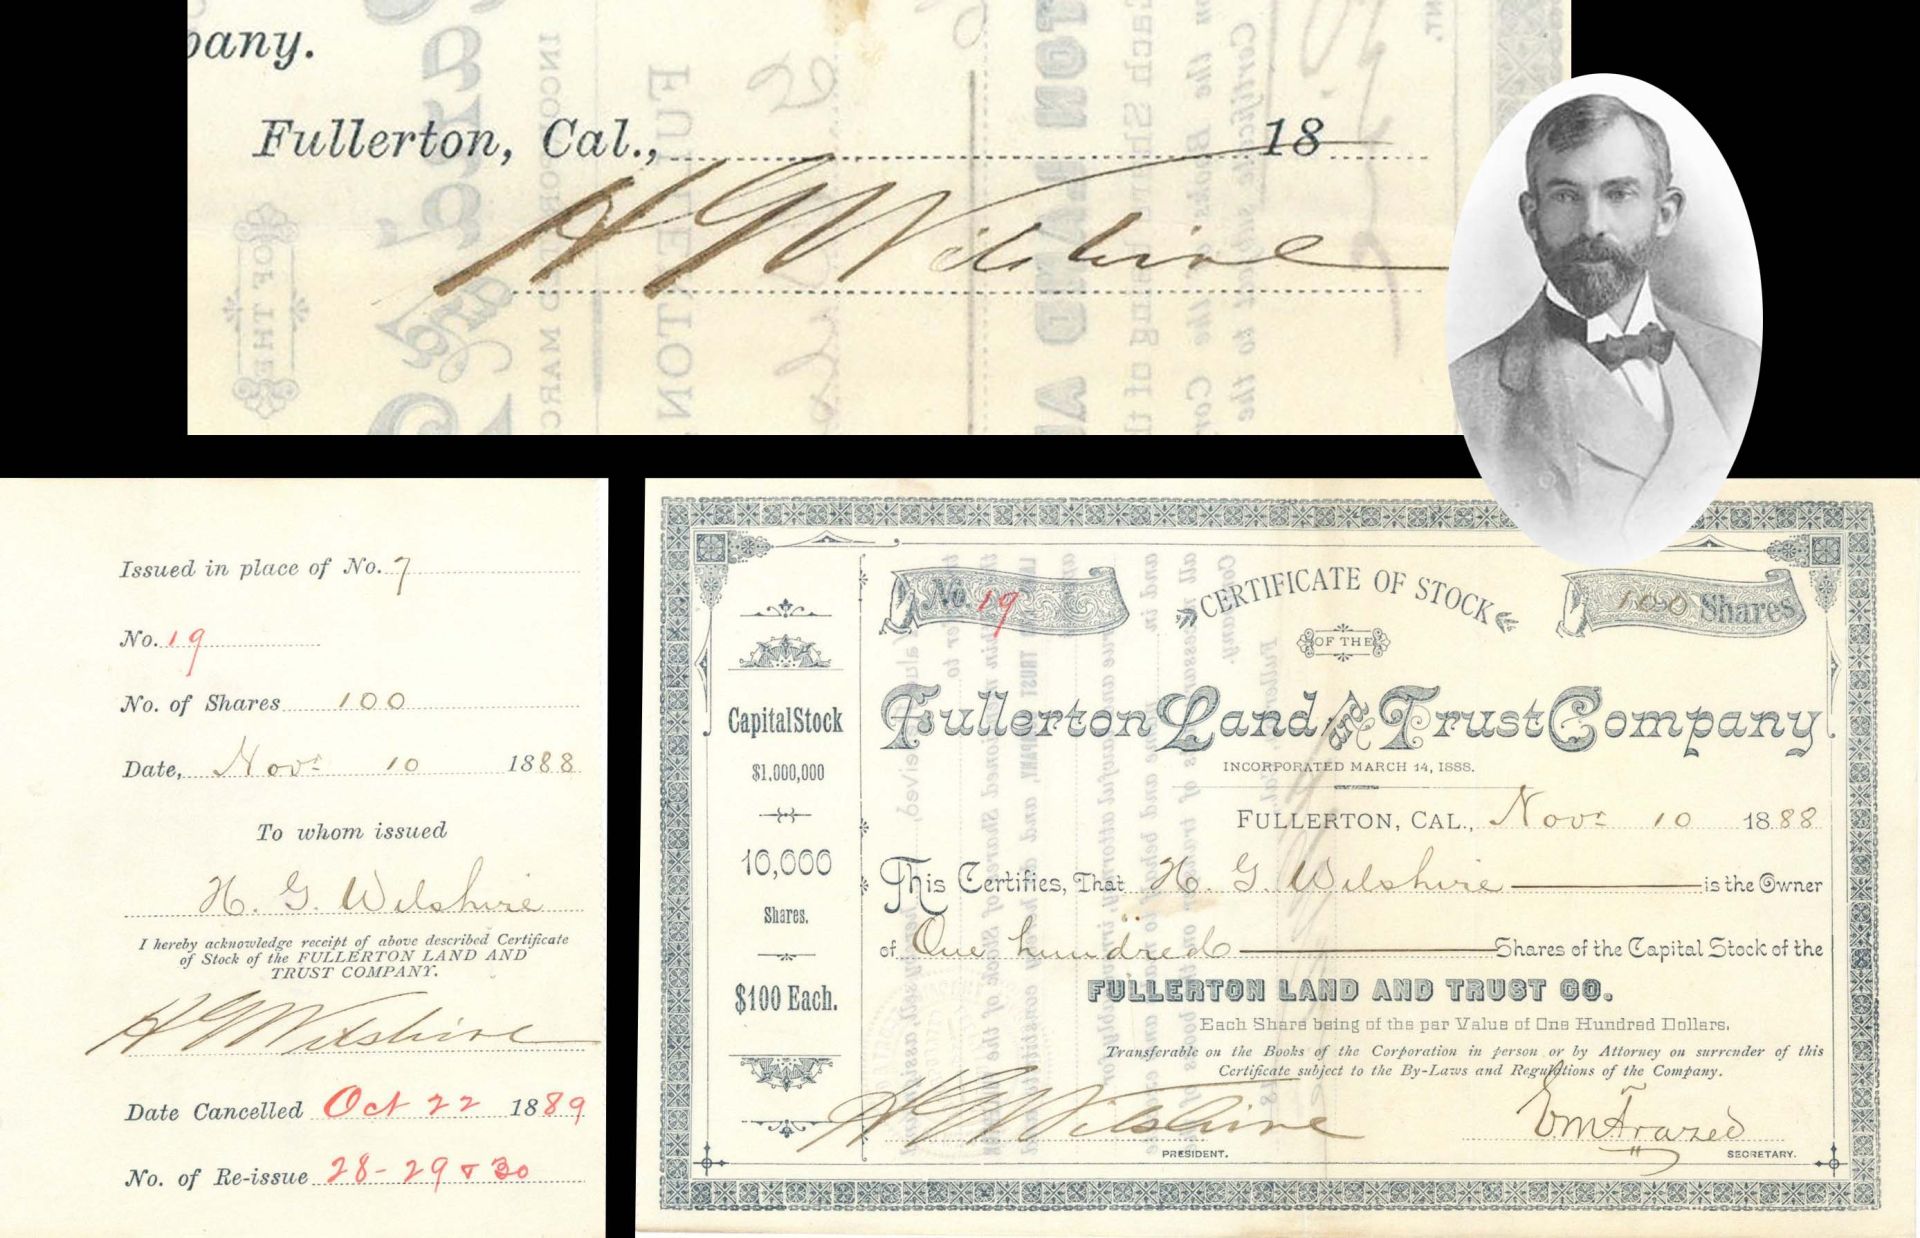 pany.
Fullerton, Cal., 18
H G Wilshire
Issued in place of No. 7
No. 19
No. of Shares 100
Date, Nov. 10 1888
To whom issued
H. G. Wilshire
I hereby acknowledge receipt of above described Certificate
of Stock of the FULLERTON LAND AND
TRUST COMPANY.
H G Wilshire
Date Cancelled Oct 22 1889
No. of Re-issue 28-29 & 30
No. 19
CERTIFICATE OF STOCK
100 Shares
OF THE
Fullerton Land and Trust Company
INCORPORATED MARCH 14, 1888.
Capital Stock
$1,000,000
10,000
Shares.
$100 Each.
FULLERTON, CAL., Nov. 10 1888
This Certifies, That H. G. Wilshire is the Owner
of One hundred Shares of the Capital Stock of the
FULLERTON LAND AND TRUST CO.
Each Share being of the par Value of One Hundred Dollars.
Transferable on the Books of the Corporation in person or by Attorney on surrender of this
Certificate subject to the By-Laws and Regulations of the Company.
H G Wilshire
PRESIDENT.
E M Frazed
SECRETARY.